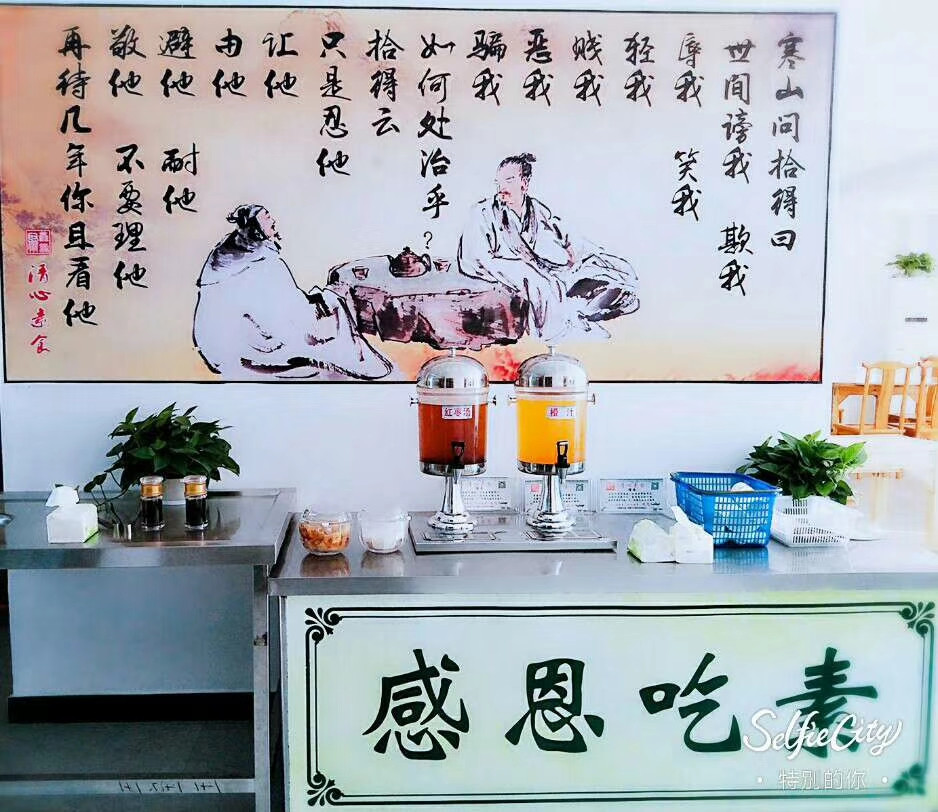 寒山问拾得曰
世间谤我 欺我
辱我 笑我
轻我
贱我
恶我
骗我
如何处治乎?
拾得云
只是忍他
让他
由他
避他 耐他
敬他 不要理他
再待几年你且看他
清心素食
红枣汤
橙汁
感恩吃素
SelfieCity
·特别的你·